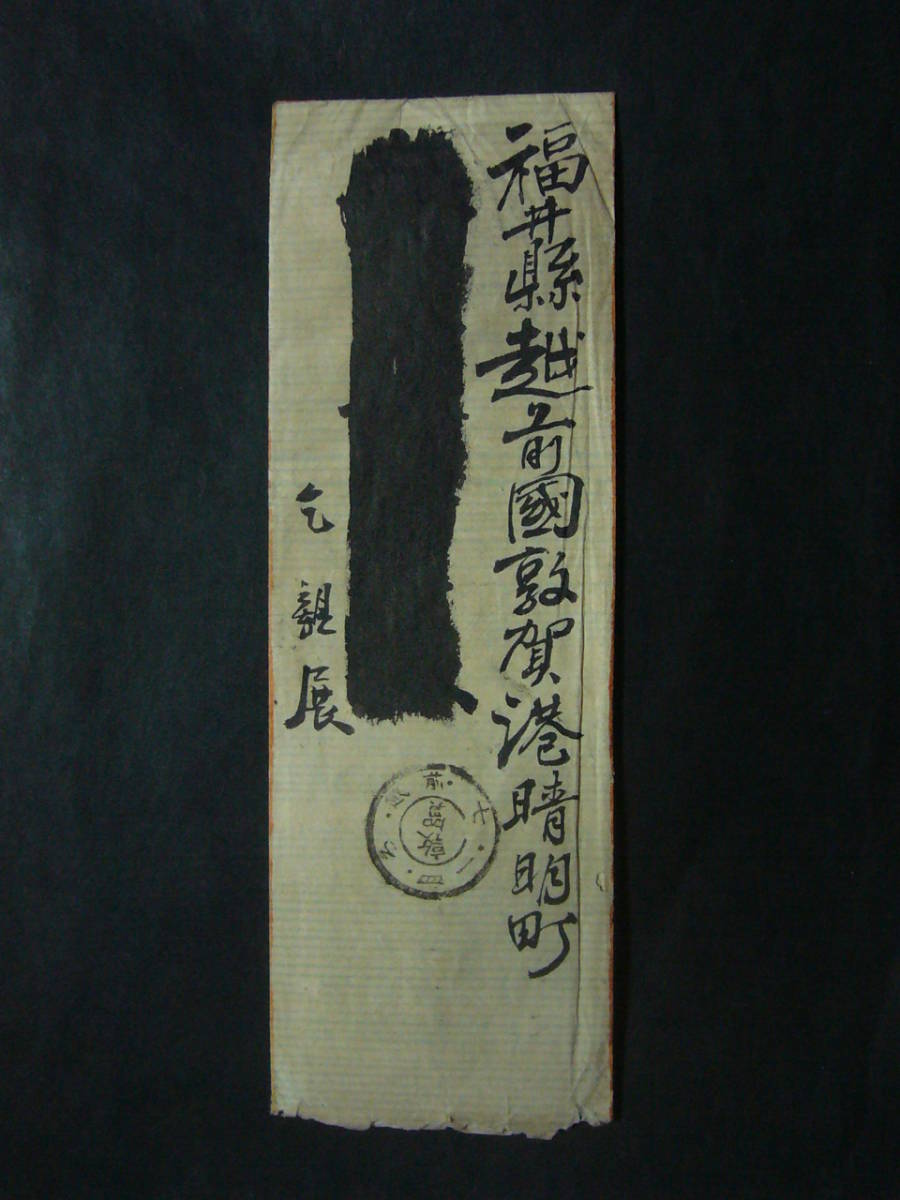 福井縣越前國敦賀港晴明町
乞親展
敦賀